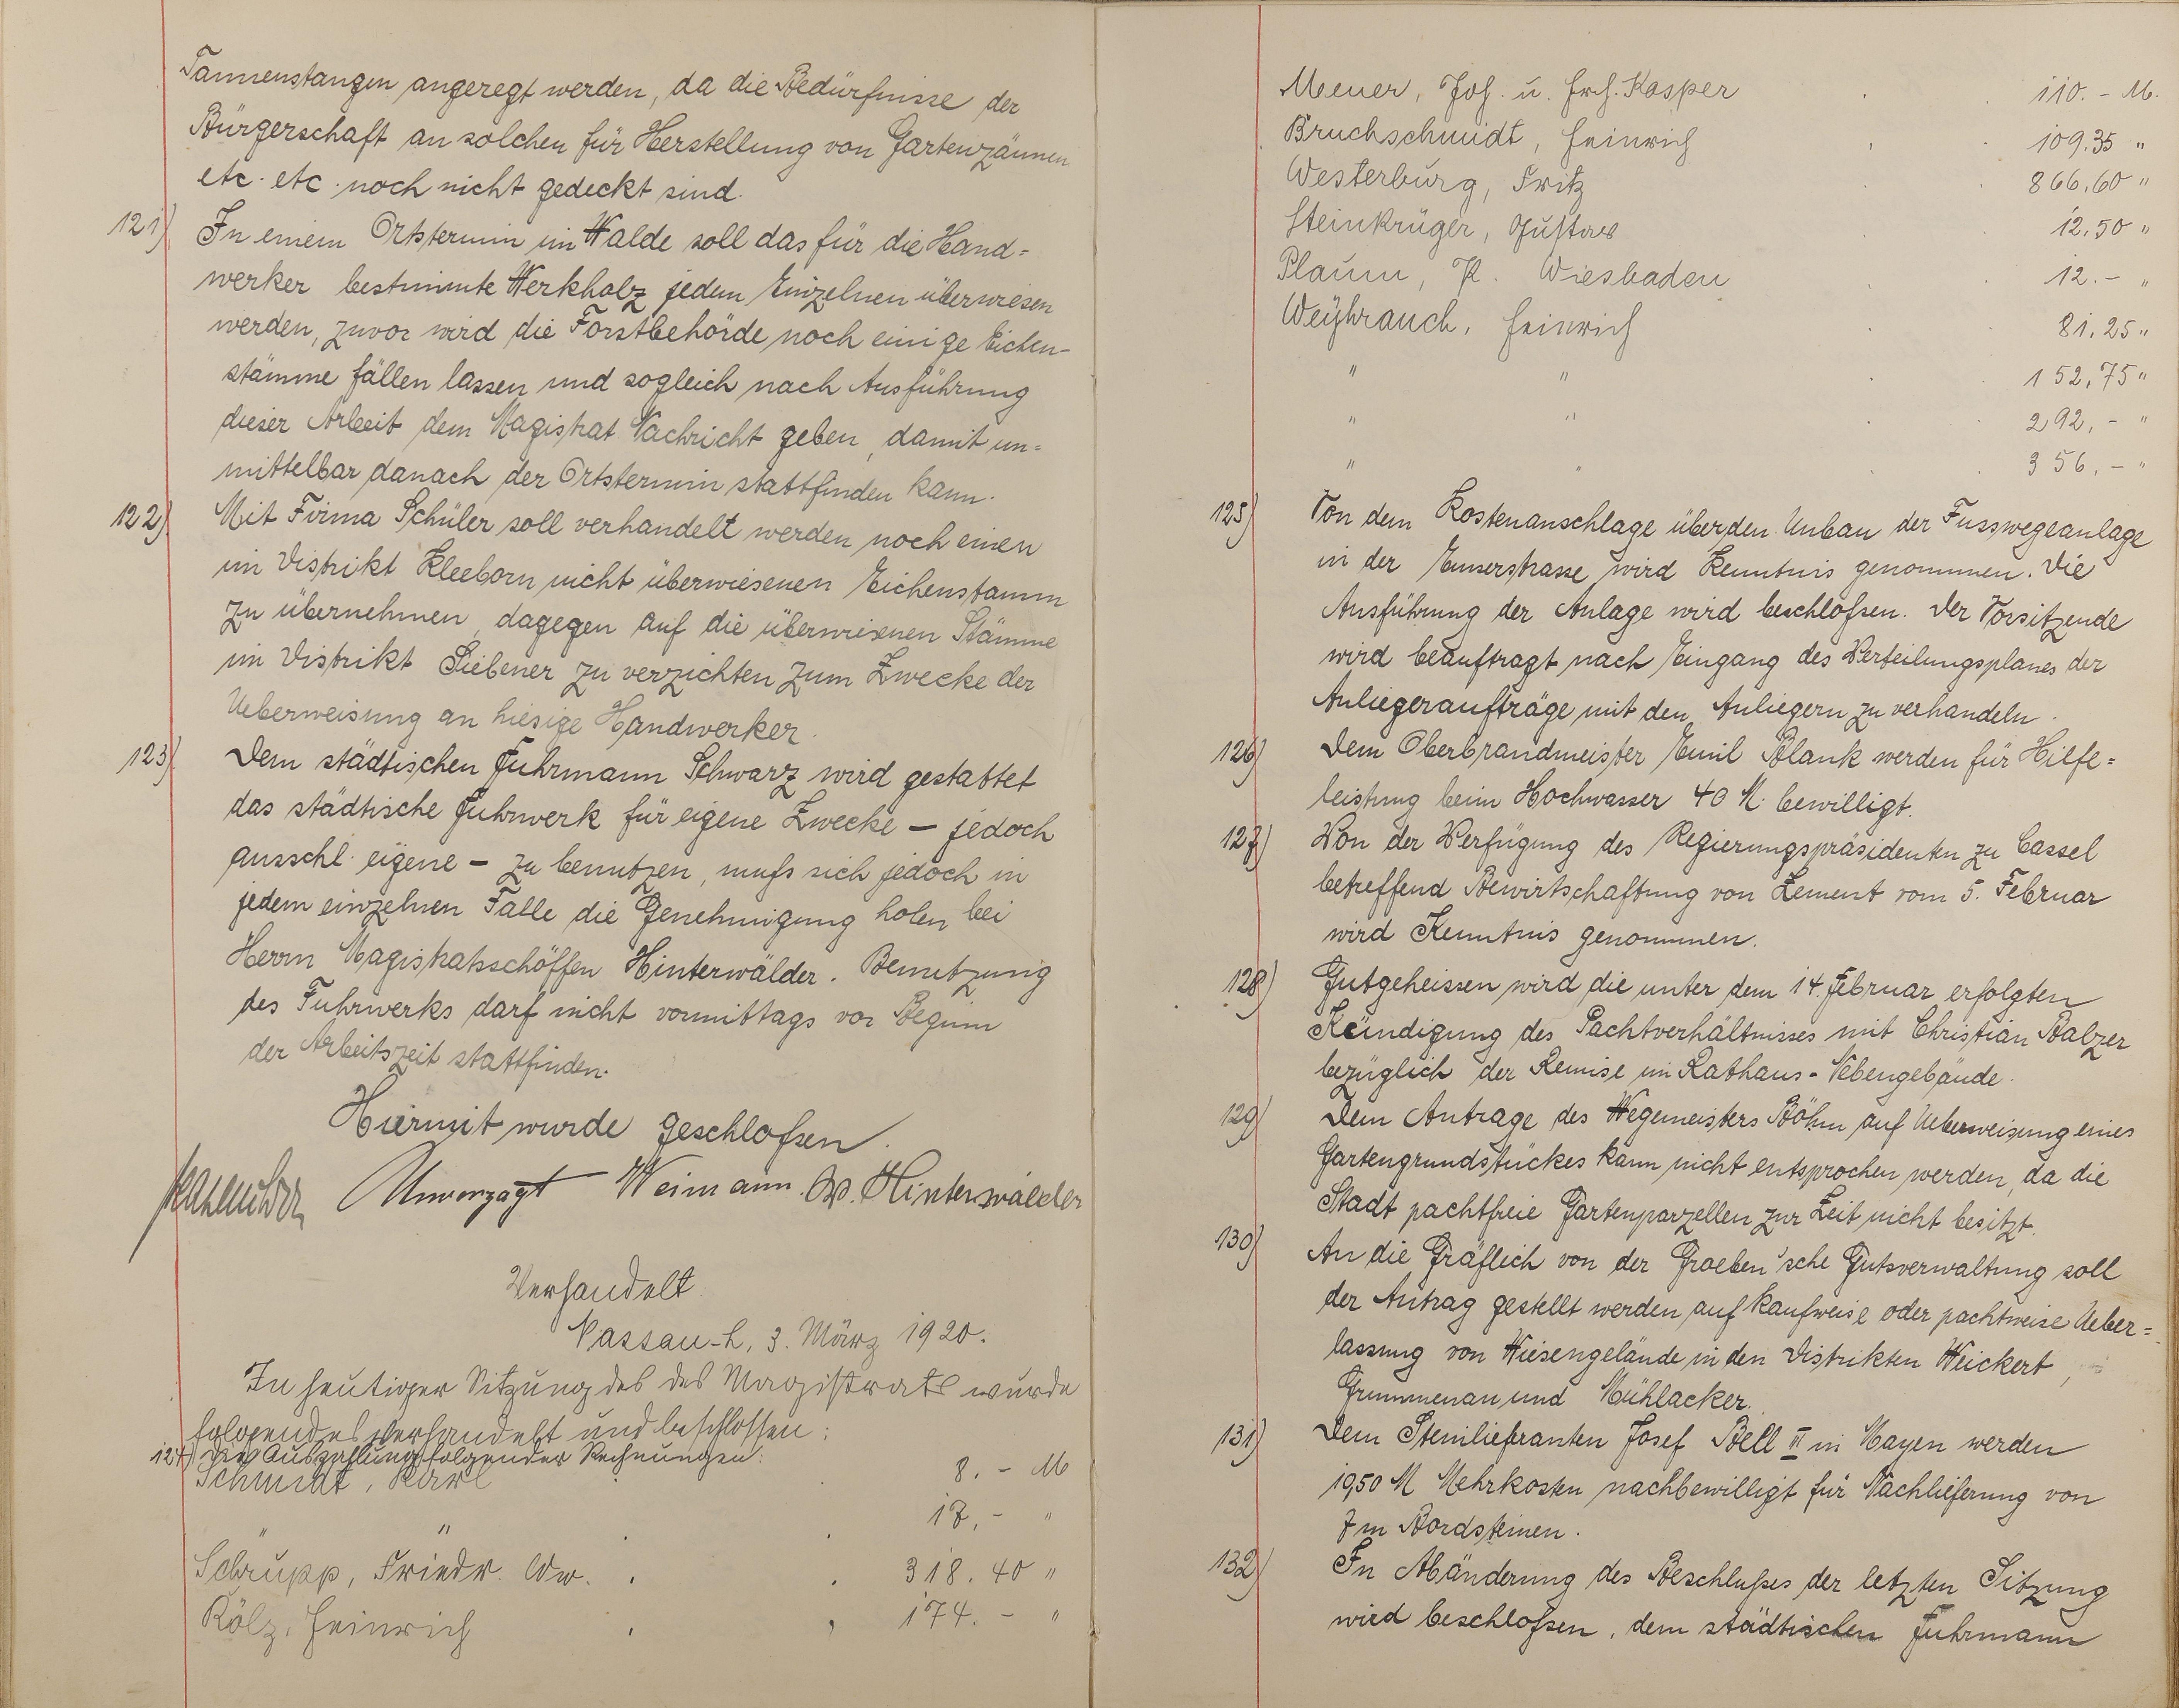 Tannenstangen angeregt werden, da die Bedürfnisse der
Bürgerschaft an solchen für Herstellung von Gartenzäunen
etc. etc. noch nicht gedeckt sind.
121) In einem Ortstermin im Walde soll das für die Hand=
werker bestimmte Werkholz jedem Einzelnen überwiesen
werden, zuvor wird die Forstbehörde noch einige Eichen-
stämme fällen lassen und sogleich nach Ausführung
dieser Arbeit dem Magistrat Nachricht geben, damit un=
mittelbar danach der Ortstermin stattfinden kann.
122) Mit Firma Schüler soll verhandelt werden noch einen
im Distrikt Kleeborn nicht überwiesenen Eichenstamm
zu übernehmen, dagegen auf die überwiesenen Stämme
im Distrikt Siebener zu verzichten zum Zwecke der
Ueberweisung an hiesige Handwerker.
123) Dem städtischen Fuhrmann Schwarz wird gestattet
das städtische Fuhrwerk für eigene Zwecke – jedoch
ausschl. eigene – zu benutzen, mufs sich jedoch in
jedem einzelnen Falle die Genehmigung holen bei
Herrn Magistratsschöffen Hinterwälder. Benutzung
des Fuhrwerks darf nicht vormittags vor Beginn
der Arbeitszeit stattfinden.
Hiermit wurde geschlofsen.
Unverzagt Weimann. W. Hinterwälder
Verhandelt
Nassau-L, 3. März 1920.
In heutiger Sitzung des des Magistrats wurde
folgendes verhandelt und beschlossen:
124) Die Auszahlung folgender Rechnungen:
Schmidt, Karl 8.- M
" " 17,- "
Schrupp, Friedr. Ww. 318.40 "
Kölz, Heinrich 174.- "
Meuer, Jos. u. Frh. Kasper 110.- M.
Bruchschmidt, Heinrich 109.35 "
Westerburg, Fritz 866,60 "
Steinkrüger, Gustav 12,50 "
Plaum, P. Wiesbaden 12.- "
Weyhrauch, Heinrich 81,25 "
" " 152,75 "
" " 292,- "
" " 356,- "
125) Von dem Kostenanschlage über den Umbau der Fusswegeanlage
in der Emserstrasse wird Kenntnis genommen. Die
Ausführung der Anlage wird beschlofsen. Der Vorsitzende
wird beauftragt nach Eingang des Verteilungsplanes der
Anliegeraufträge mit den Anliegern zu verhandeln.
126) Dem Oberbrandmeister Emil Blank werden für Hilfe=
leistung beim Hochwasser 40 M. bewilligt.
127) Von der Verfügung des Regierungspräsidenten zu Cassel
betreffend Bewirtschaftung von Zement vom 5. Februar
wird Kenntnis genommen.
128) Gutgeheissen wird die unter dem 14. Februar erfolgten
Kündigung des Pachtverhältnisses mit Christian Balzer
bezüglich der Remise im Rathaus-Nebengebäude.
129) Dem Antrage des Wegemeisters Böhm auf Ueberweisung eines
Gartengrundstückes kann nicht entsprochen werden, da die
Stadt pachtfreie Gartenparzellen zur Zeit nicht besitzt.
130) An die Gräflich von der Groeben'sche Gutsverwaltung soll
der Antrag gestellt werden auf kaufweise oder pachtweise Ueber=
lassung von Wiesengelände in den Distrikten Weickert,
Grummenau und Mühlacker.
131) Dem Steinlieferanten Josef Bell II in Mayen werden
19,50 M Mehrkosten nachbewilligt für Nachlieferung von
7 m Bordsteinen.
132) In Abänderung des Beschlufses der letzten Sitzung
wird beschlofsen, dem städtischen Fuhrmann